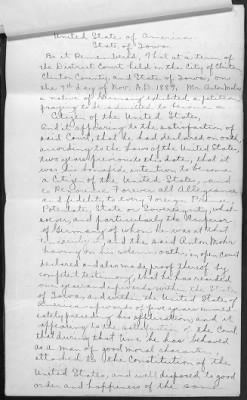 United State of America
State of Iowa
Be it Remembered, That at a term of
the District Court held in the City of Clinton
Clinton County, and State of Iowa, on
the 7th day of Nov. A.D. 1889, Mr. Anton Mohr
a native of Germany exhibited a petition
praying to be admitted to become a
Citizen of the United States,
And it appearing to the satisfaction of
said Court, that he had declared on oath
according to the laws of the United States
two years previous to this date, that it
was his bona fide intention to become
a Citizen of the United States, and
to Renounce Forever all Allegiance
and fidelity to every Foreign Prince
Potentate State or Sovereignty, what-
soever, and particularly the Emperor
of Germany of whom he was at that
time and the said Anton Mohr
having on his solemn oath, in open Court
declared and also made proof thereof by
competent testimony, that he has resided
one year and upwards within the State
of Iowa, and within the United States of
America upwards of five years immed-
iately preceding his application; and it
appearing to the satisfaction of the Court
that during that time he has behaved
as a man of good moral character
attached to the Constitution of the
United States, and well disposed to good
order and happiness of the same